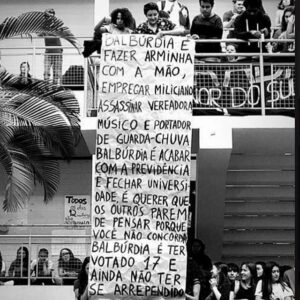 BALBÚRDIA É
FAZER ARMINHA
COM A MÃO,
EMPREGAR MILICIANO
ASSASSINAR VEREADORA
MÚSICO E PORTADOR
DE GUARDA-CHUVA
BALBÚRDIA É ACABAR
COM A PREVIDÊNCIA
E FECHAR UNIVERSI
DADE, É QUERER QUE
OS OUTROS PAREM
DE PENSAR PORQUE
VOCÊ NÃO CONCORDA
BALBÚRDIA É TER
VOTADO 17 E
AINDA NÃO TER
SE ARREPENDIDO
DO
Todos